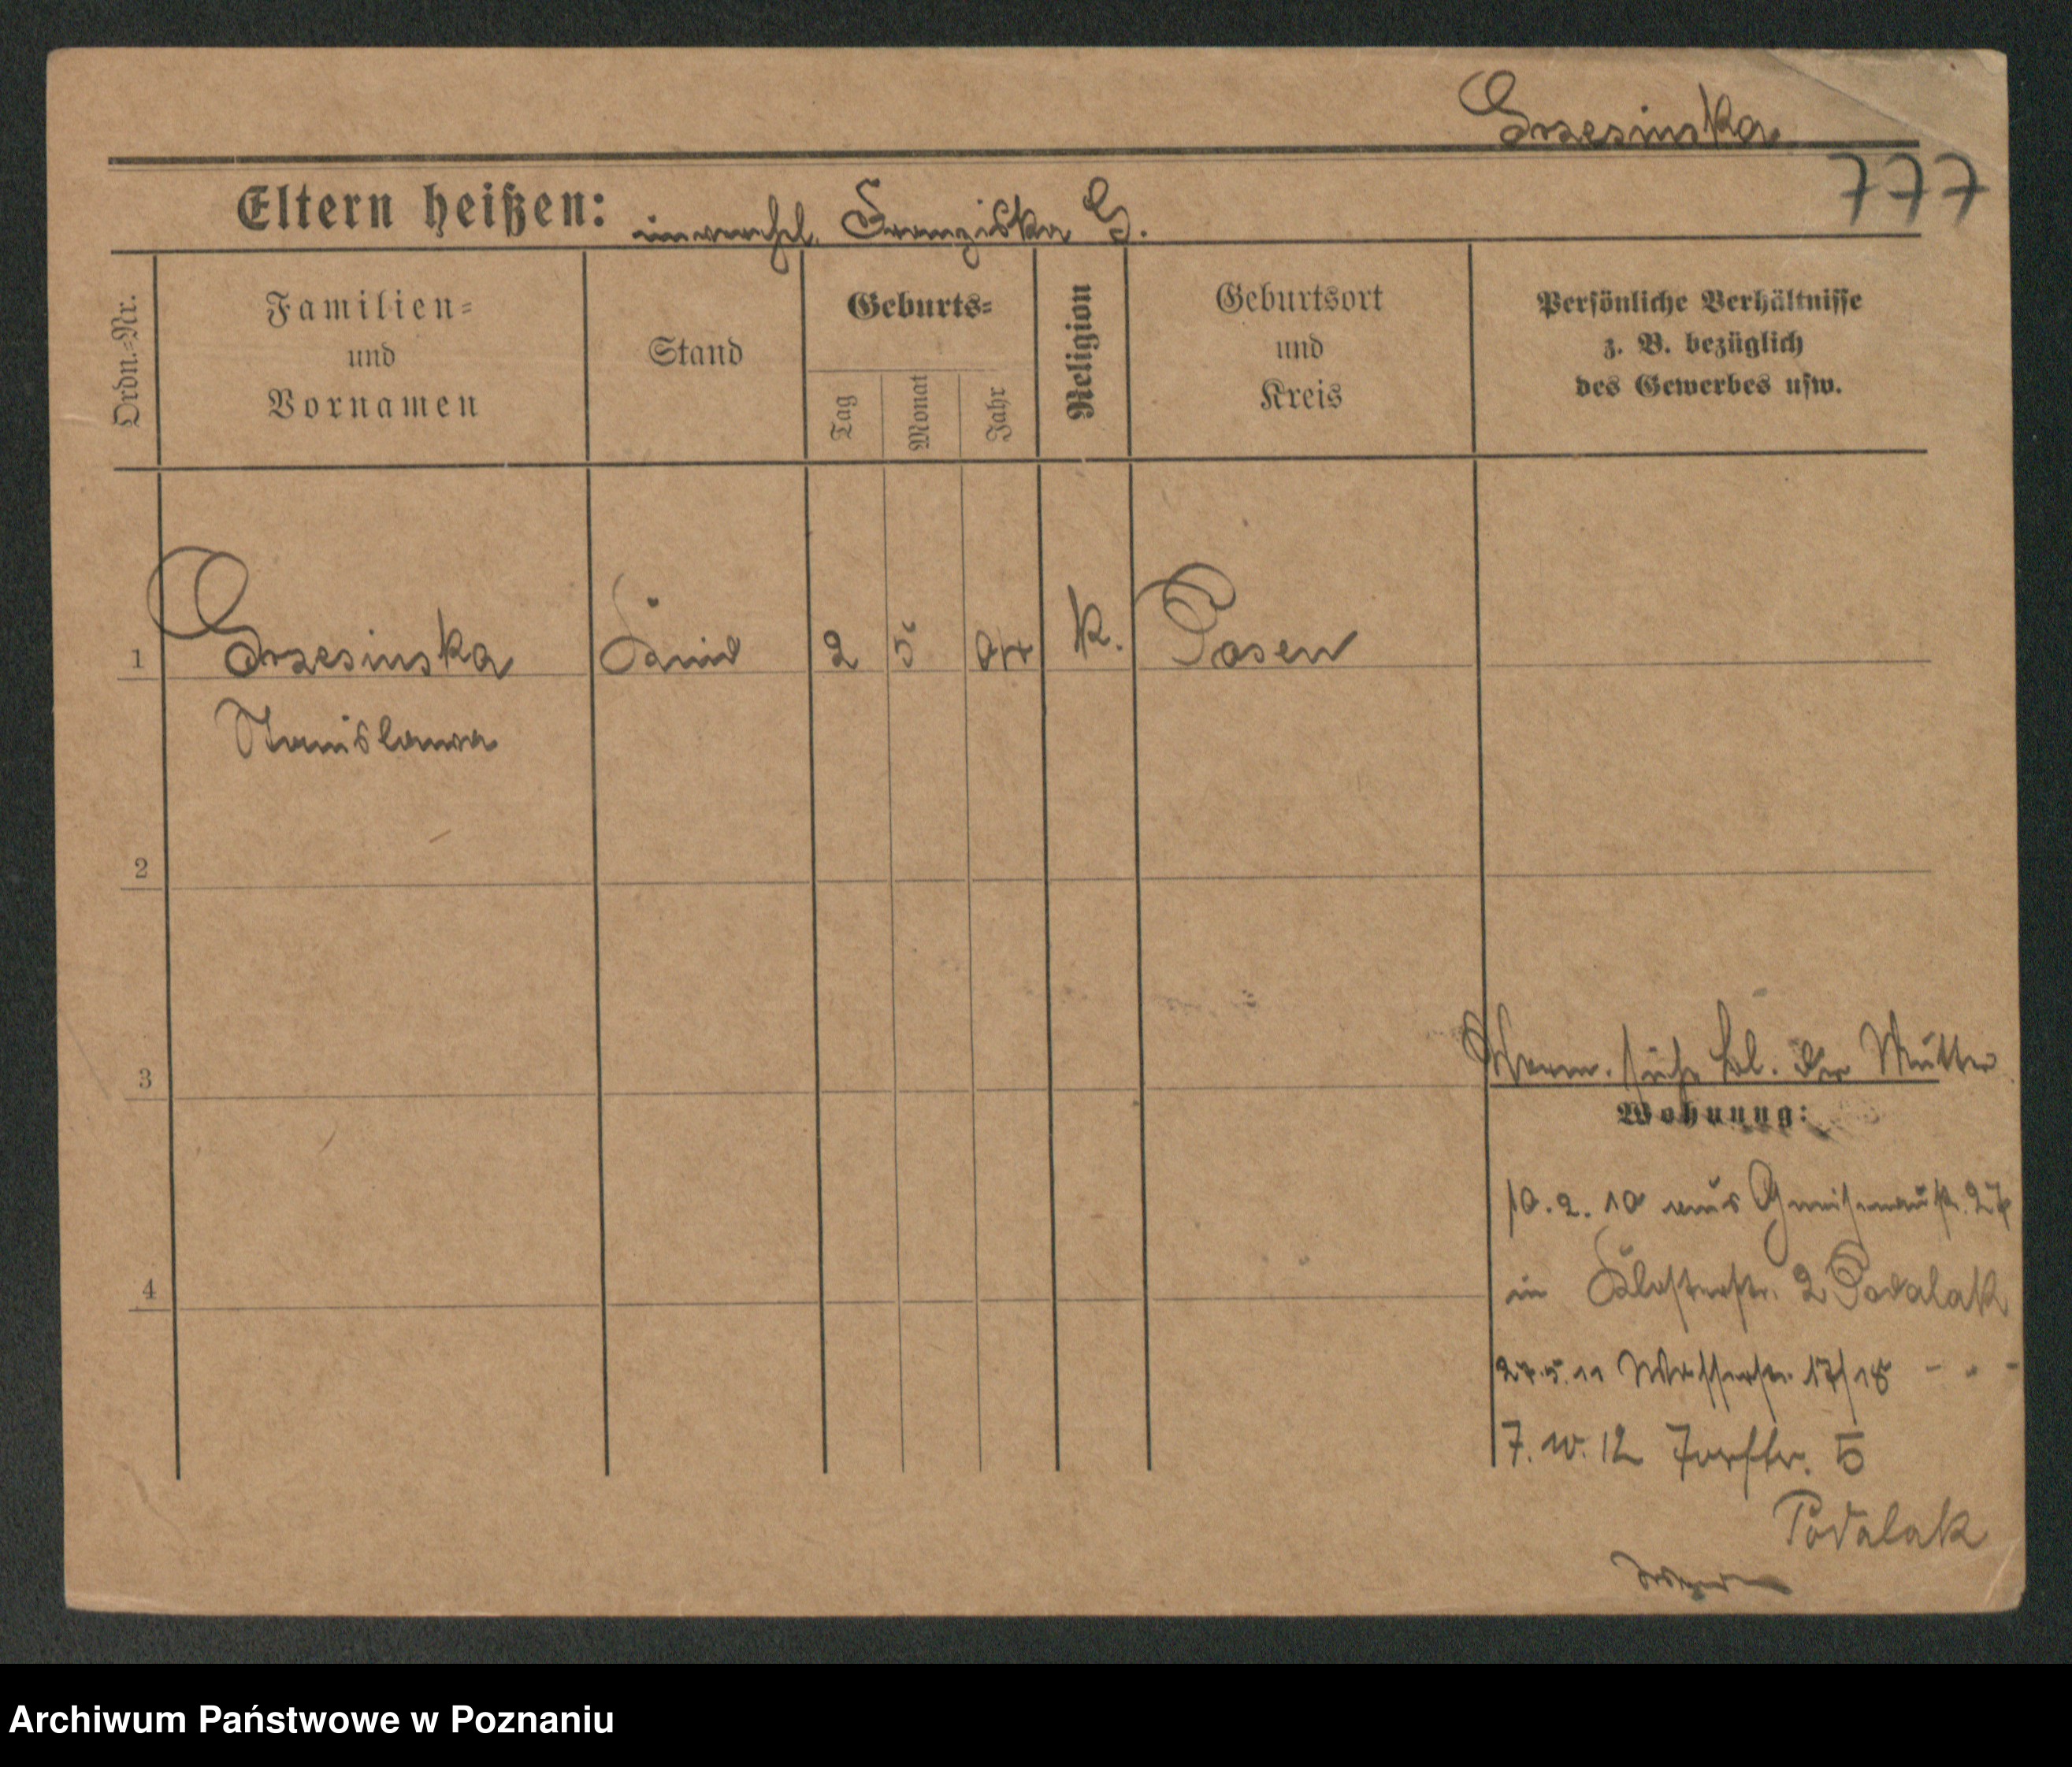 Grzesinska
777
Eltern heißen: unverehl. Franziska G.
Ordn.=Nr.
Familien=
und
Vornamen
Stand
Geburts=
Tag
Monat
Jahr
Religion
Geburtsort
und
Kreis
Persönliche Verhältnisse
z. B. bezüglich
des Gewerbes usw.
1 Grzesinska Kind 2 5 k. Posen
Stanislawa
2
3
4
siehe bl. der Mutter
Wohnung:
10. 2. 10 aus Gneisenaustr. 27
in Klosterstr. 2 Povalak
27.5.11 Wasserstr. 17/18 - " -
7. 10. 12 Torstr. 5
Povalak
Archiwum Państwowe w Poznaniu